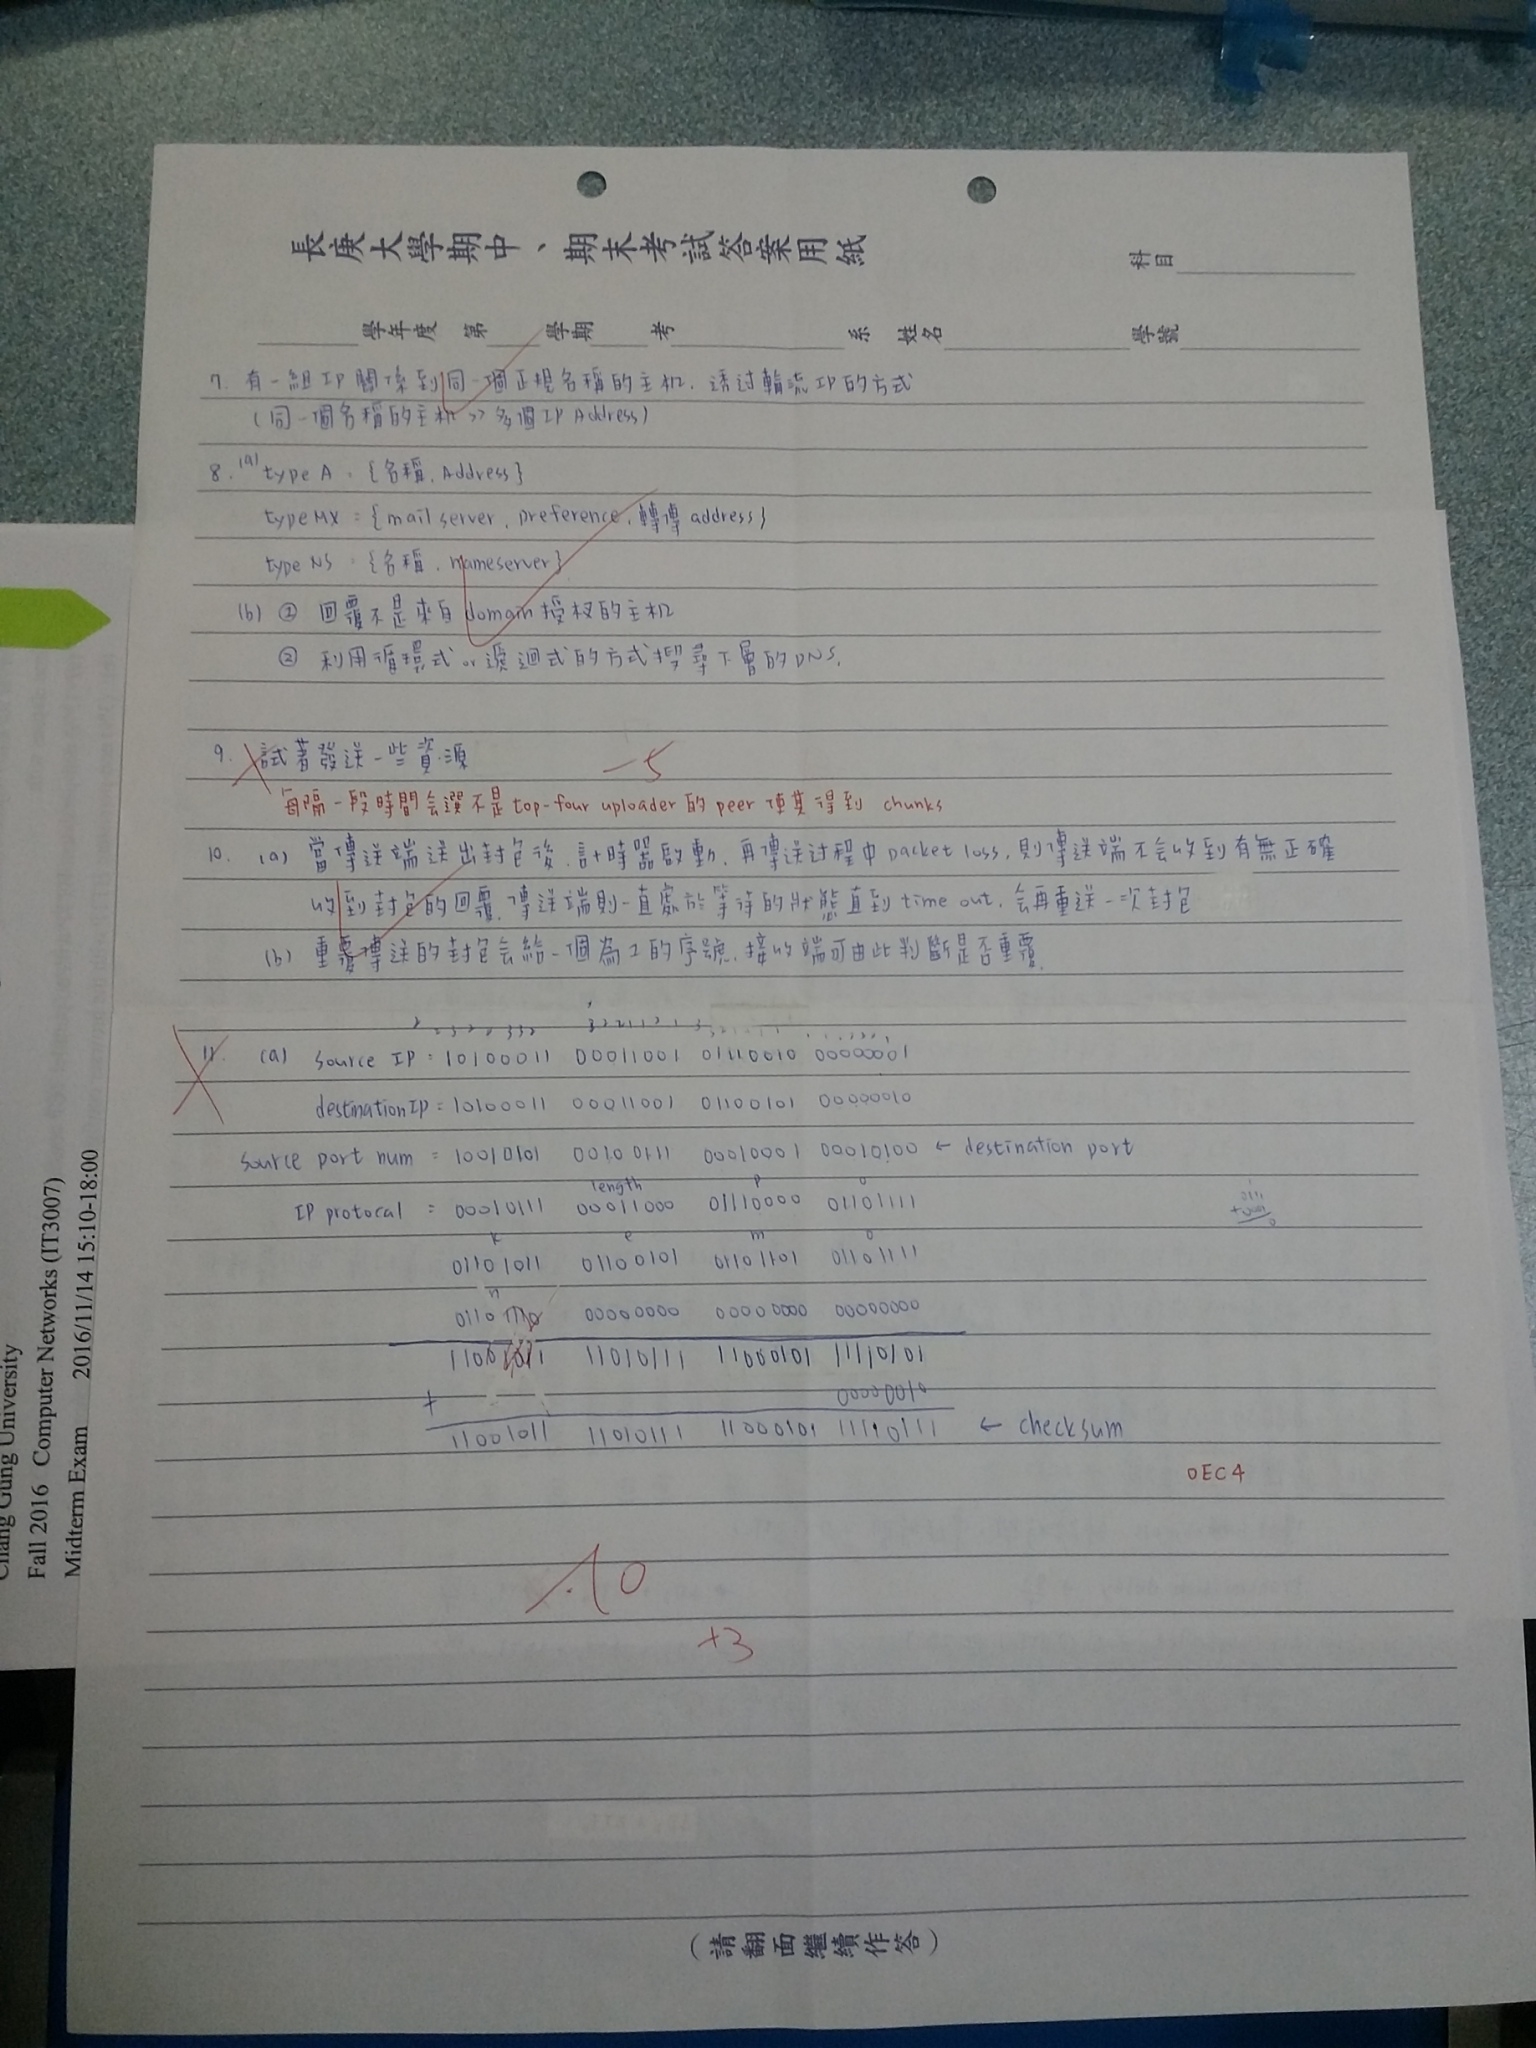 長庚大學期中、期末考試答案用紙
科目
學年度 第 學期 考 系 姓名 學號
7. 有一組IP關係到同一個正規名稱的主机, 透过輪流IP的方式
(同一個名稱的主机 >> 多個IP Address)
8. (a) type A = {名稱, Address}
type MX = {mail server, preference, 轉傳 address}
type NS = {名稱, nameserver}
(b) ① 回覆不是來自domain授权的主机
② 利用循環式 or 遞迴式的方式搜尋下層的DNS.
9. 試著發送一些資源
-5
每隔一段時間会選不是top-four uploader的peer使其得到 chunks
10. (a) 當傳送端送出封包後, 計時器啟動, 再傳送过程中packet loss, 則傳送端不会收到有無正確
收到封包的回覆, 傳送端則一直處於等待的狀態直到time out, 会再重送一次封包
(b) 重覆傳送的封包会給一個為1的序號, 接收端可由此判斷是否重覆.
11. (a) Source IP = 10100011 00011001 01110010 00000001
destination IP = 10100011 00011001 01100101 00000010
Source port num = 10010101 00100111 00010001 00010100 ← destination port
length P o
IP protocal = 00010111 00011000 01110000 01101111
k e m o
01101011 01100101 01101101 01101111
n
01101110 00000000 00000000 00000000
11001011 11010111 11000101 11110101
+ 01000000
11001011 11010111 11000101 11110111 ← checksum
0EC4
-10
+3
(請翻面繼續作答)
Chang Gung University
Fall 2016 Computer Networks (IT3007)
Midterm Exam 2016/11/14 15:10-18:00